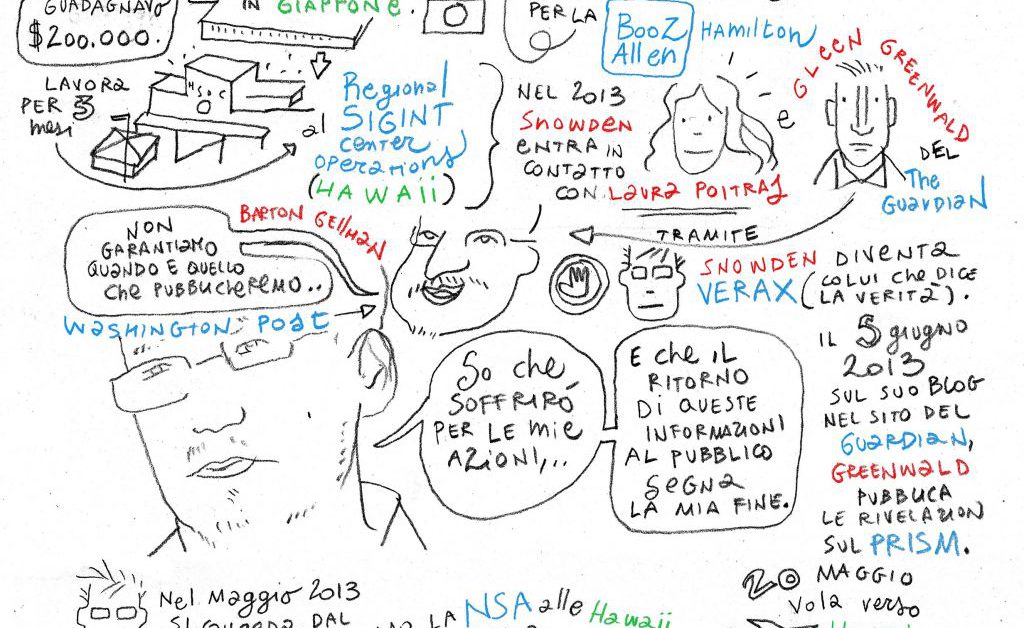 GUADAGNAVO
$200.000.
IN GIAPPONE.
PER LA
BOOZ
Allen
HAMILTON
LAVORA
PER 3
mesi
HSOC
al
Regional
SIGINT
center
OPERATIONS
(HAWAii)
NEL 2013
SNOWDEN
ENTRA IN
CONTATTO
CON LAURA POITRAS
e
GLEEN GREENWALD
DEL
The
GUARDIAN
TRAMITE
BARTON GEllMAN
NON
GARANTIAMO
QUANDO E QUELLO
Che PUBBLICHEREMO..
WaSHINGTON POST
SNOWDEN DIVENTA
VERAX (COLUI Che DICE
LA VERITÀ).
So che
SOFFRIRÒ
PER LE Mie
AZIONI,..
E che IL
RITORNO
Di QUESTE
INFORMAZIONI
AL PUBBLICO
SEGNA
LA MIA FINE.
IL 5 giugno
2013
SUL SUO BLOG
NEL SITO DEL
GUARDIAN,
GREENWALD
PUBBLICA
LE RIVELAZIONI
SUL PRISM.
Nel Maggio 2013
DAL
LA NSA alle Hawaii
20 MAGGIO
Vola verso